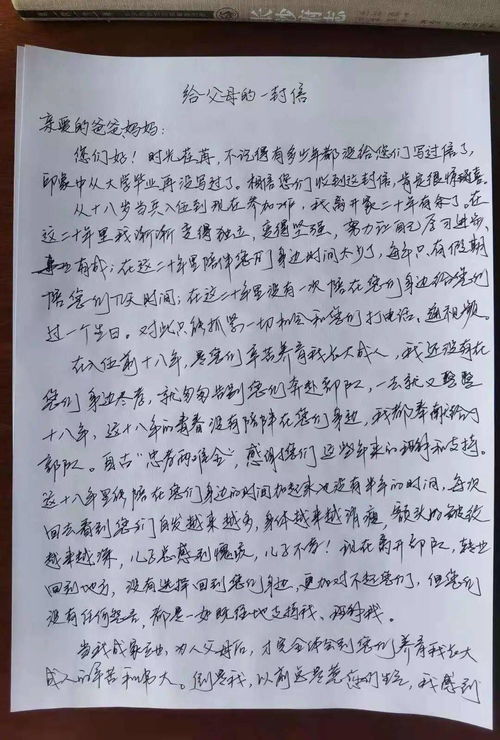 给父母的一封信
亲爱的爸爸妈妈：
您们好！时光荏苒，不记得有多少年都没给您们写过信了，
印象中从大学毕业再没写过了。相信您们收到这封信，肯定很惊喜。
从十八岁当兵入伍到现在参加工作，我离开家二十年有余了。在
这二十年里我渐渐变得独立，变得坚强，努力让自己有所进步，
事业有成；在这二十年里陪伴您们身边时间太少了，每年只有假期
陪您们几天时间；在这二十年里没有一次陪在您们身边给您们
过一个生日。对此只能抓紧一切机会和您们打电话、通视频。
在入伍前十八年，是您们辛苦养育我长大成人，我还没有在
您们身边尽孝，就匆匆告别您们奔赴部队，一去就又整整
十八年，这十八年的青春没有陪伴在您们身边，我都奉献给了
部队。自古“忠孝两难全”，感谢您们这些年来的理解和支持。
这十八年里能陪在您们身边的时间加起来也没有半年的时间，每次
回去看到您们白发越来越多，身体越来越消瘦，额头的皱纹
越来越深，儿子总感到愧疚，儿子不孝！现在离开部队，转业
回到地方，没有选择回到您们身边，更加对不起您们，但您们
没有任何怨言，都是一如既往地支持我、理解我。
当我成家立业，为人父母后，才完全体会到您们养育我长大
成人的辛苦和伟大。倒是我，以前总是惹您们生气，我感到